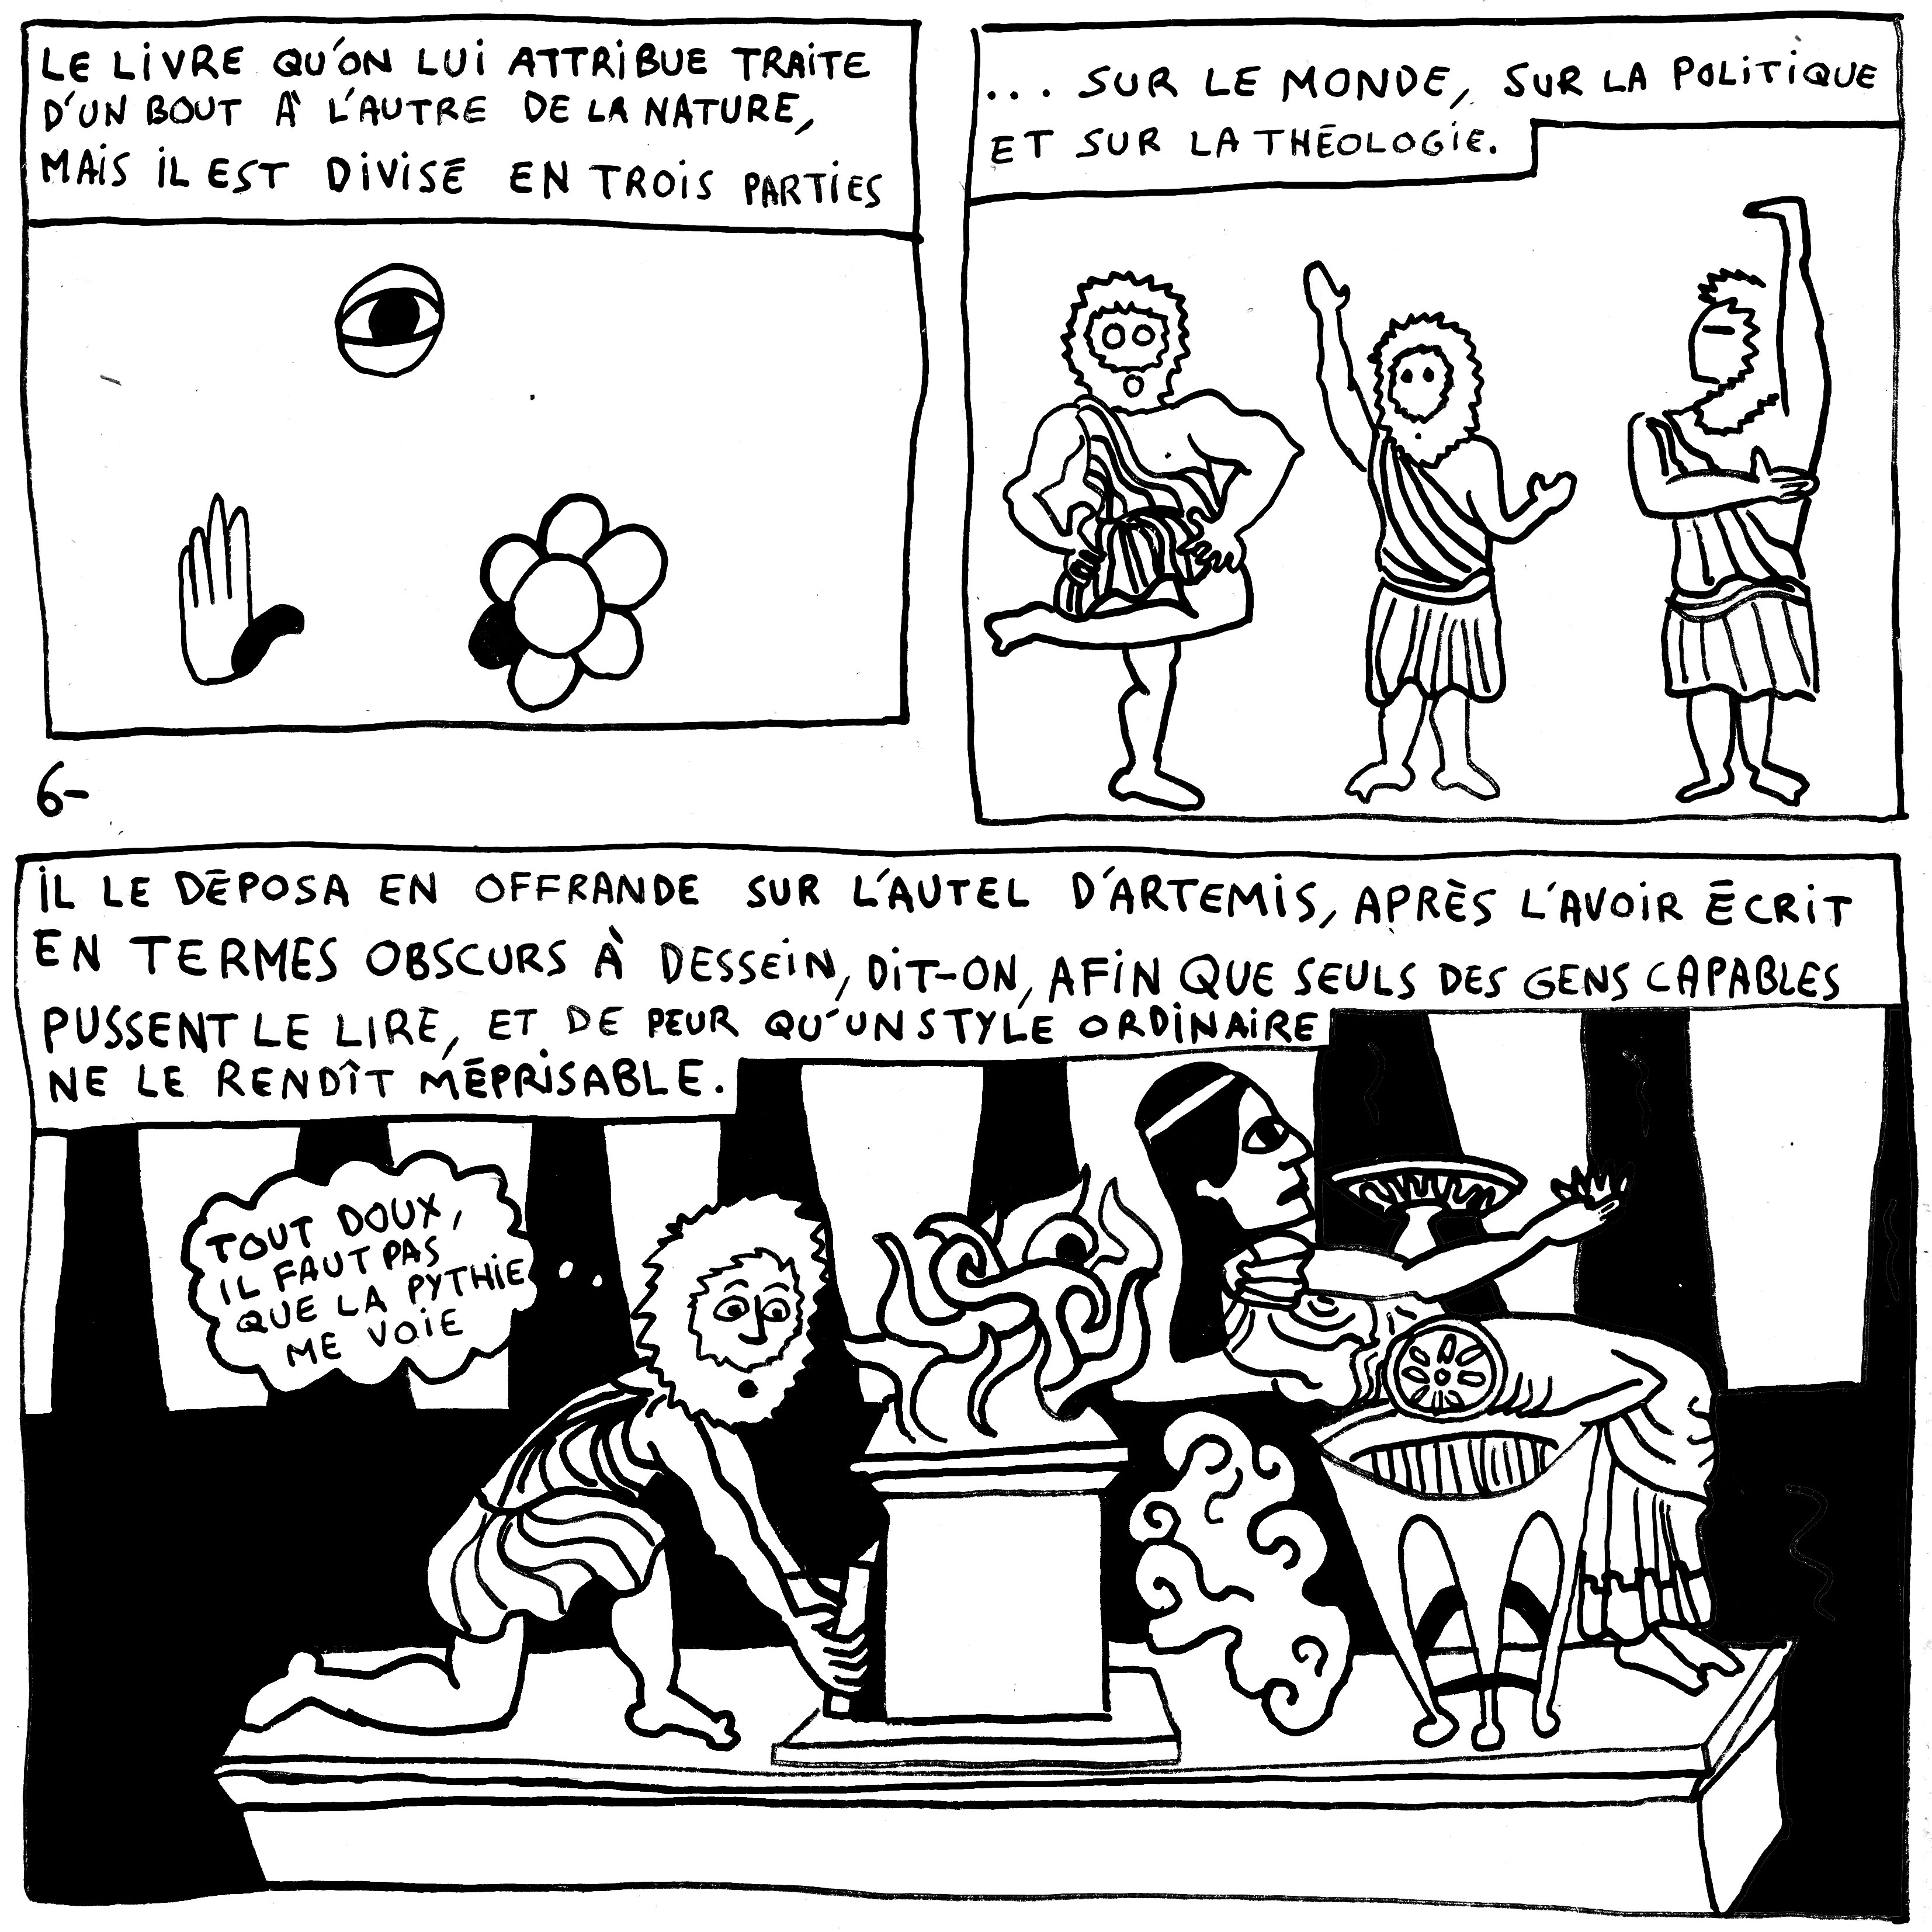 LE LIVRE QU'ON LUI ATTRIBUE TRAITE
D'UN BOUT À L'AUTRE DE LA NATURE,
MAIS IL EST DIVISÉ EN TROIS PARTIES
... SUR LE MONDE, SUR LA POLITIQUE
ET SUR LA THÉOLOGIE.
6-
IL LE DÉPOSA EN OFFRANDE SUR L'AUTEL D'ARTEMIS, APRÈS L'AVOIR ÉCRIT
EN TERMES OBSCURS À DESSEIN, DIT-ON, AFIN QUE SEULS DES GENS CAPABLES
PUSSENT LE LIRE, ET DE PEUR QU'UN STYLE ORDINAIRE
NE LE RENDÎT MÉPRISABLE.
TOUT DOUX,
IL FAUT PAS
QUE LA PYTHIE
ME VOIE